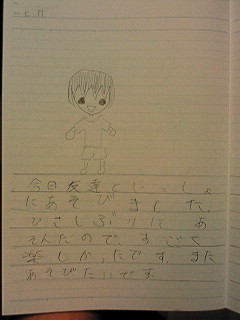 今日友達といっしょ
にあそびました。
ひさしぶりに あ
そんだので、すごく
楽しかったです。また
あそびたいです。